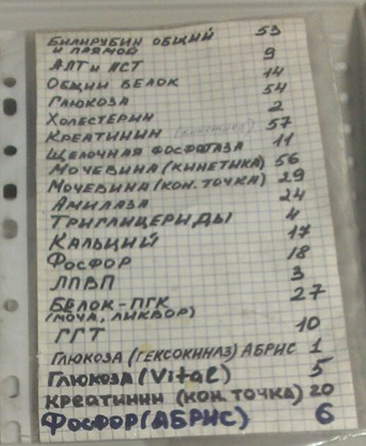 БИЛИРУБИН ОБЩИЙ 53
И ПРЯМОЙ
АЛТ и АСТ 9
ОБЩИЙ БЕЛОК 14
ГЛЮКОЗА 54
ХОЛЕСТЕРИН 2
КРЕАТИНИН (кинетика) 57
ЩЕЛОЧНАЯ ФОСФАТАЗА 11
МОЧЕВИНА (КИНЕТИКА) 56
МОЧЕВИНА (КОН. ТОЧКА) 29
АМИЛАЗА 24
ТРИГЛИЦЕРИДЫ 4
КАЛЬЦИЙ 17
ФОСФОР 18
ЛПВП 3
БЕЛОК-ПГК 27
(МОЧА, ЛИКВОР)
ГГТ 10
ГЛЮКОЗА (ГЕКСОКИНАЗ) АБРИС 1
ГЛЮКОЗА (Vital) 5
КРЕАТИНИН (КОН. ТОЧКА) 20
ФОСФОР (АБРИС) 6